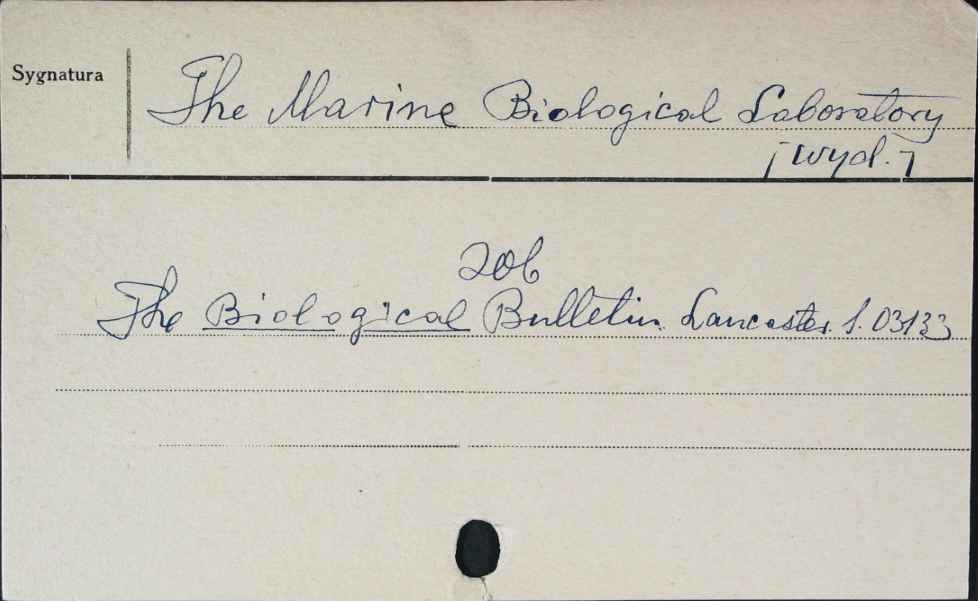 Sygnatura
The Marine Biological Laboratory
[wyd.]
zob
The Biological Bulletin. Lancaster. S. 03133